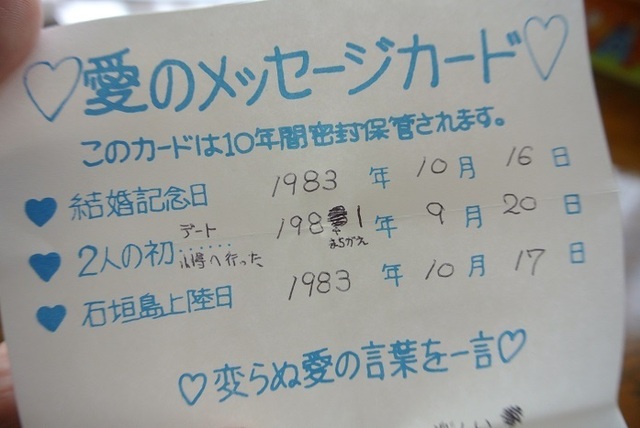 ♡愛のメッセージカード♡
このカードは10年間密封保管されます。
♥ 結婚記念日 1983年 10月 16日
デート
♥ 2人の初…… 1981年 9月 20日
へ行った まちがえ
♥ 石垣島上陸日 1983年 10月 17日
♡変らぬ愛の言葉を一言♡
楽しい